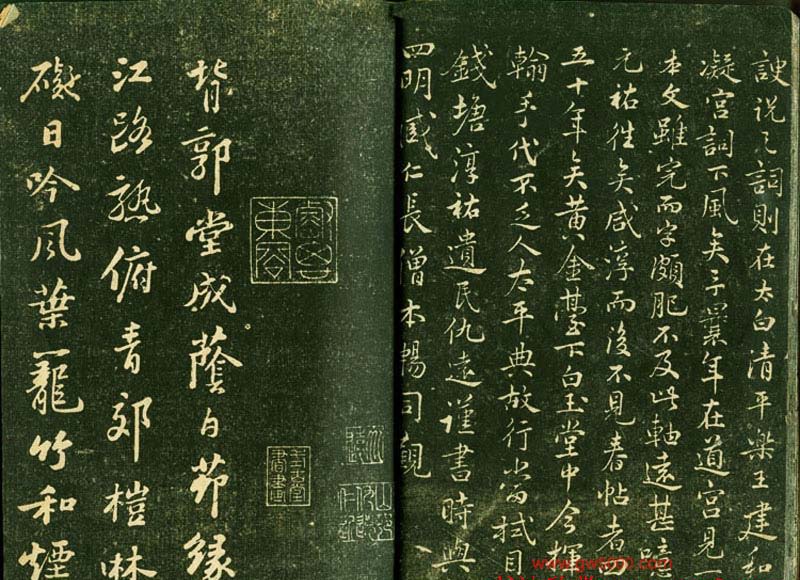 諛說之詞則在太白清平樂王建和
凝宮詞下風矣予曩年在道宮見一
本文雖完而字頗肥不及此軸遠甚噫
元祐往矣咸淳而後不見春帖者四
五十年矣黃金臺下白玉堂中今揮
翰手代不乏人太平典故行當拭目
錢塘淳祐遺民仇遠謹書時與
四明臧仁長僧本暢同觀
背郭堂成蔭白茅緣
江路熟俯青郊榿林
礙日吟風葉籠竹和煙